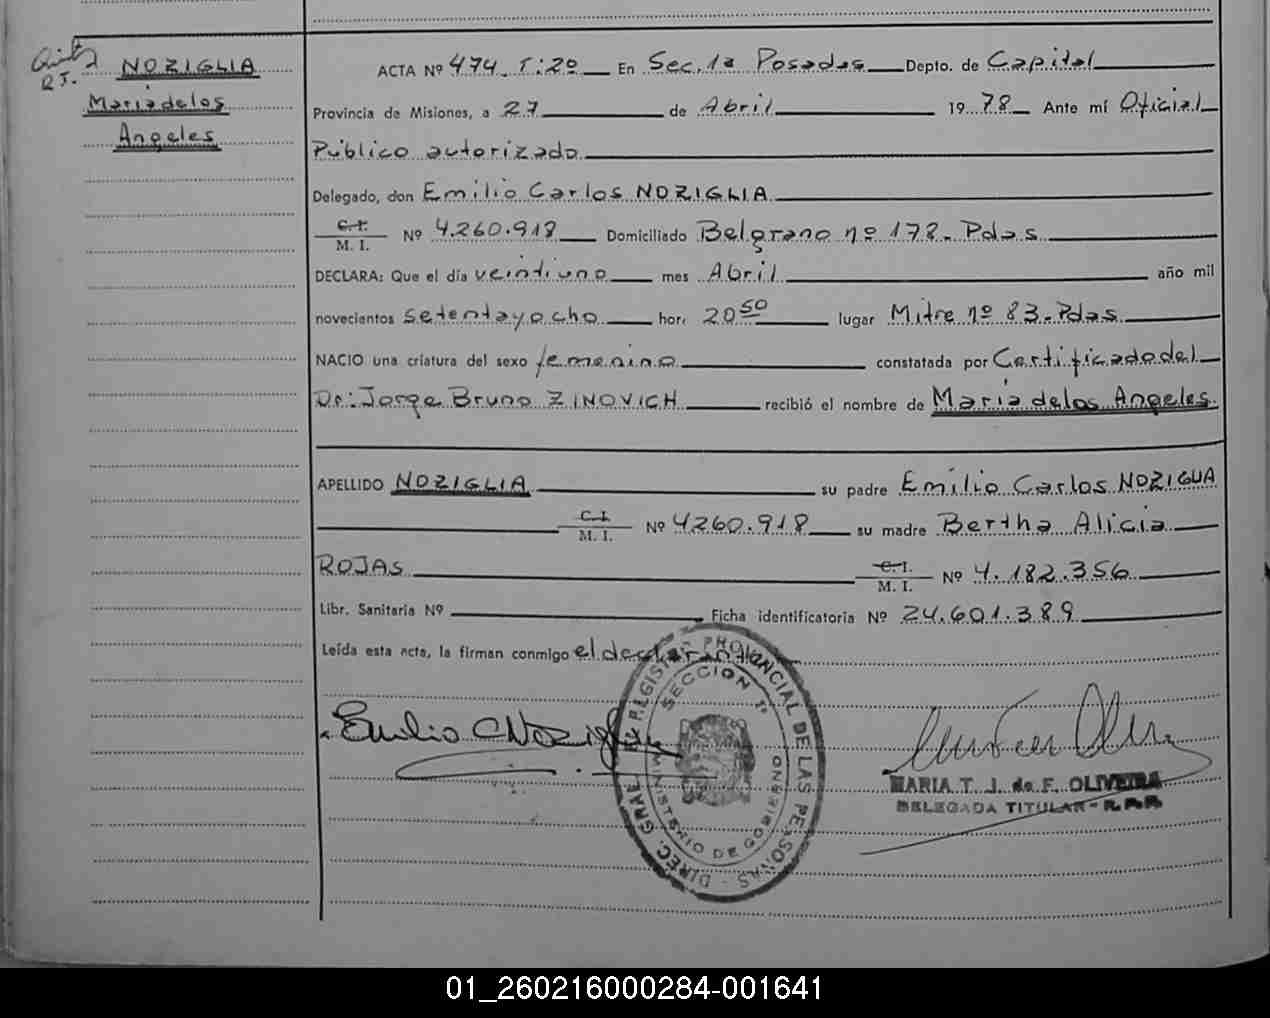 NOZIGLIA
Maria de los
Angeles
ACTA Nº 474 T: 2º En Sec. 1a Posadas Depto. de Capital
Provincia de Misiones, a 27 de Abril 19 78 Ante mí Oficial
Público autorizado
Delegado, don Emilio Carlos NOZIGLIA
C. I.
M. I. Nº 4.260.918 Domiciliado Belgrano nº 178 - Pdas
DECLARA: Que el día veintiuno mes Abril año mil
novecientos setenta y ocho hora 20 50 lugar Mitre nº 83 - Pdas
NACIO una criatura del sexo femenino constatada por Certificado del
Dr: Jorge Bruno ZINOVICH recibió el nombre de Maria de los Angeles
APELLIDO NOZIGLIA su padre Emilio Carlos NOZIGLIA
C. I.
M. I. Nº 4260.918 su madre Bertha Alicia
ROJAS C. I.
M. I. Nº 4.182.356
Libr. Sanitaria Nº Ficha identificatoria Nº 24.601.389
Leída esta acta, la firman conmigo el declarante
Emilio C Noziglia
DIREC. GRAL. REGISTRO PROVINCIAL DE LAS PERSONAS
SECCION 1ª
MINISTERIO DE GOBIERNO
MARIA T. J. de F. OLIVEIRA
DELEGADA TITULAR - R.P.P.
01_260216000284-001641